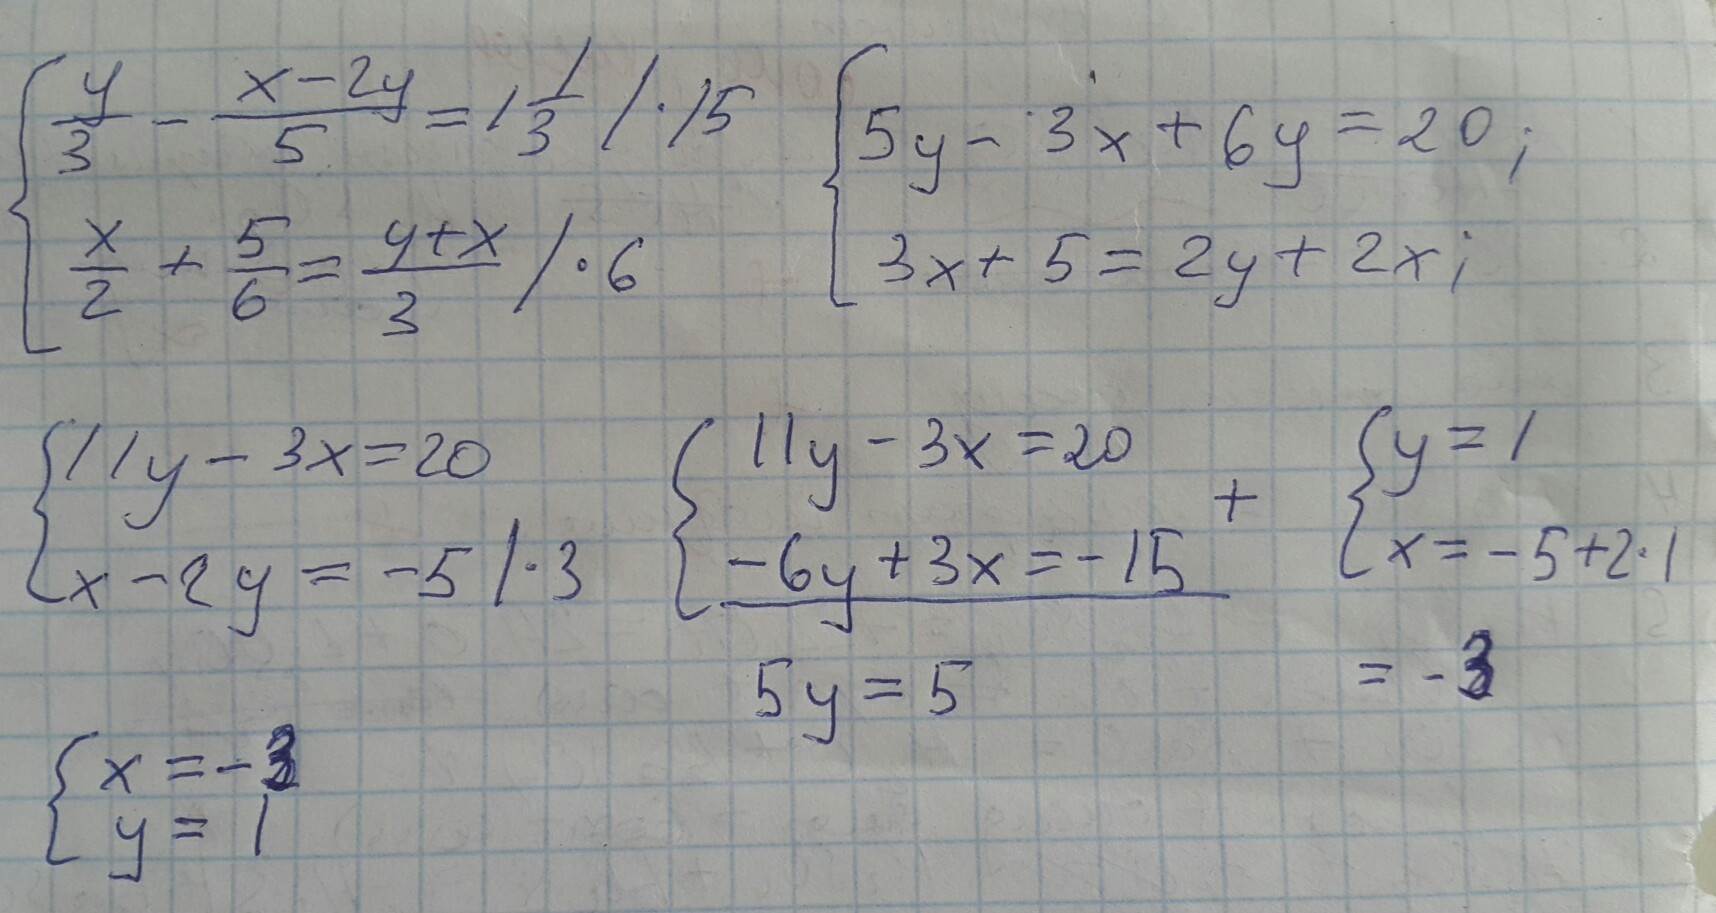 y/3 - (x-2y)/5 = 1 1/3 / ·15
x/2 + 5/6 = (y+x)/3 / ·6
5y - 3x + 6y = 20;
3x + 5 = 2y + 2x;
11y - 3x = 20
x - 2y = -5 / ·3
11y - 3x = 20
+
-6y + 3x = -15
5y = 5
y = 1
x = -5 + 2·1
= -3
x = -3
y = 1